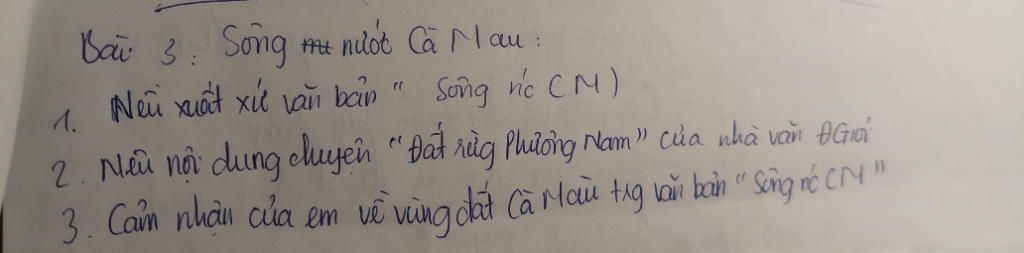 Bài 3: Sông nước Cà Mau:
1. Nêu xuất xứ văn bản " Sông nc (CM)
2. Nêu nội dung chuyện "Đất rừg Phương Nam" của nhà văn ĐGiỏi
3. Cảm nhận của em về vùng đất Cà Mau trg văn bản "Sông nc CM"